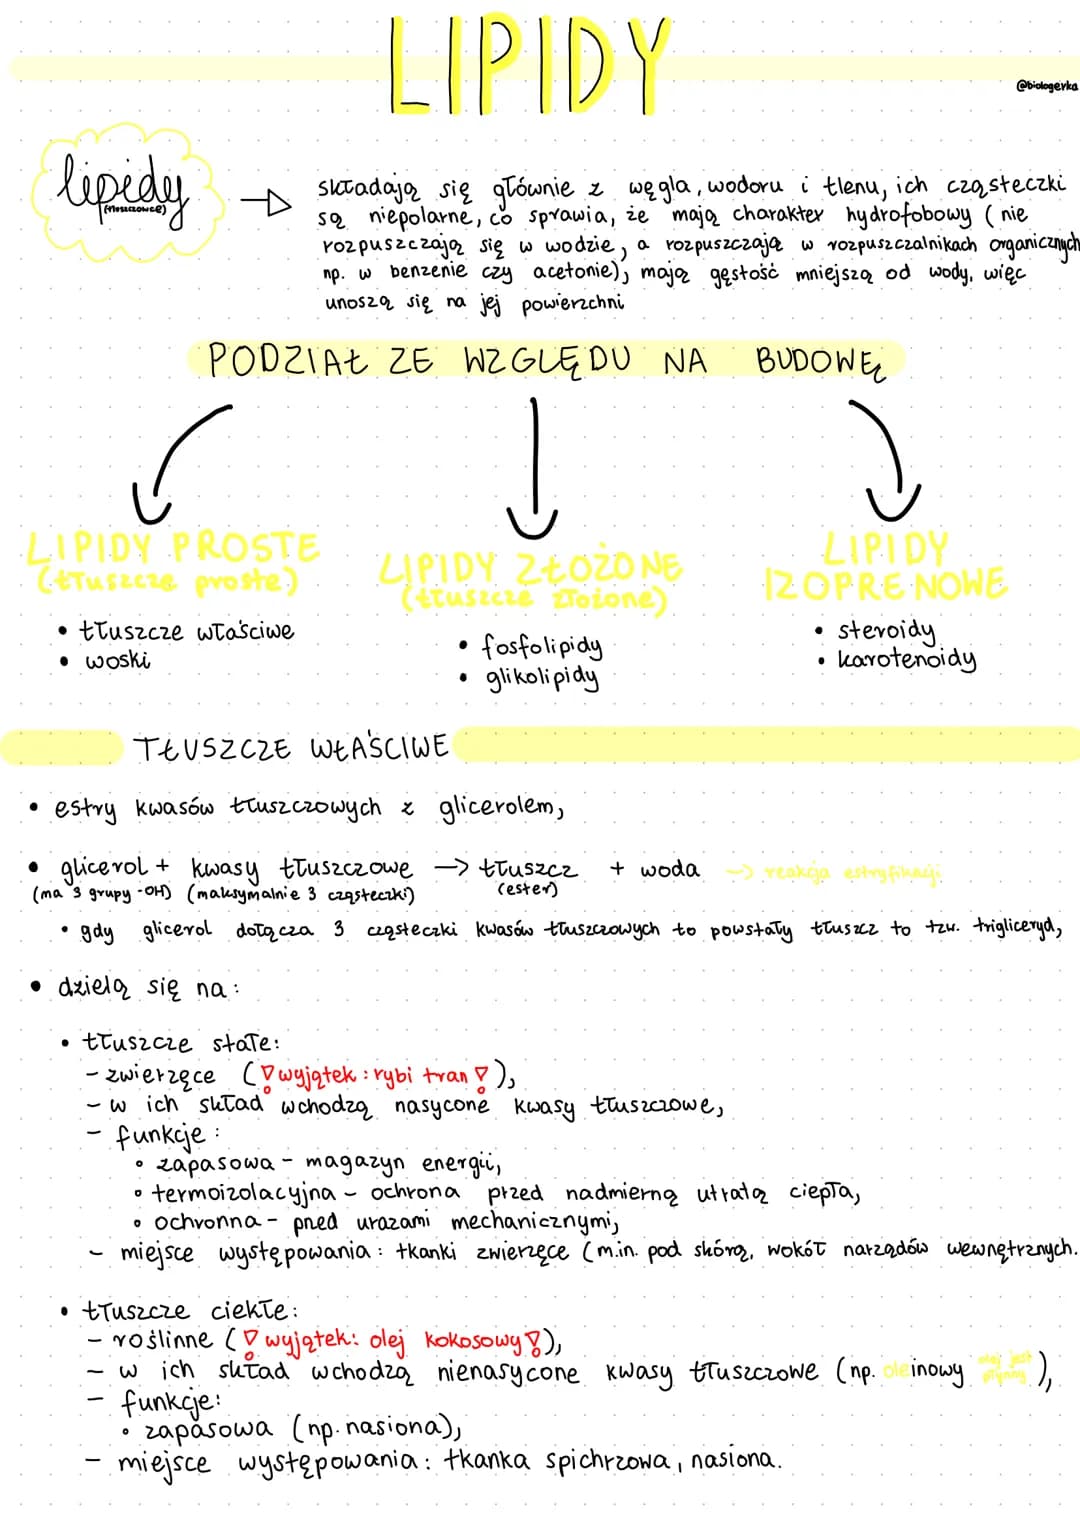 LIPIDY
@biologerka
lipidy
(tłuszczowce)
składają się głównie z węgla, wodoru i tlenu, ich cząsteczki
są niepolarne, co sprawia, że mają charakter hydrofobowy (nie
rozpuszczają się w wodzie, a rozpuszczają w rozpuszczalnikach organicznych
np. w benzenie czy acetonie), mają gęstość mniejszą od wody, więc
unoszą się na jej powierzchni
PODZIAŁ ZE WZGLĘDU NA BUDOWĘ
LIPIDY PROSTE
(tłuszcze proste)
• tłuszcze właściwe
• woski
LIPIDY ZŁOŻONE
(tłuszcze złożone)
• fosfolipidy
• glikolipidy
LIPIDY
IZOPRENOWE
• steroidy
• karotenoidy
TŁUSZCZE WŁAŚCIWE
• estry kwasów tłuszczowych z glicerolem,
• glicerol + kwasy tłuszczowe → tłuszcz + woda → reakcja estryfikacji
(ma 3 grupy -OH) (maksymalnie 3 cząsteczki) (ester)
• gdy glicerol dołącza 3 cząsteczki kwasów tłuszczowych to powstały tłuszcz to tzw. trigliceryd,
• dzielą się na:
• tłuszcze stałe:
- zwierzęce (! wyjątek: rybi tran !),
- w ich skład wchodzą nasycone kwasy tłuszczowe,
- funkcje:
• zapasowa - magazyn energii,
• termoizolacyjna - ochrona przed nadmierną utratą ciepła,
• ochronna - pned urazami mechanicznymi,
- miejsce występowania: tkanki zwierzęce (m.in. pod skórą, wokół narządów wewnętrznych.
• tłuszcze ciekłe:
- roślinne (! wyjątek: olej kokosowy !),
- w ich skład wchodzą nienasycone kwasy tłuszczowe (np. oleinowy olej jest płynny),
- funkcje:
• zapasowa (np. nasiona),
- miejsce występowania: tkanka spichrzowa, nasiona.